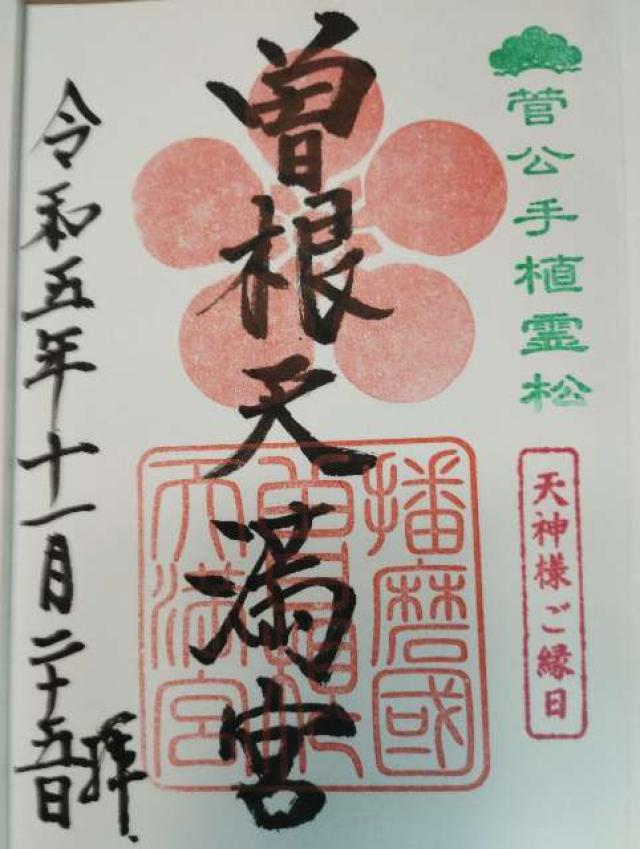 菅公手植霊松
天神様ご縁日
曽根天満宮
播磨國
曽根社
天満宮
令和五年十一月二十五日
拝